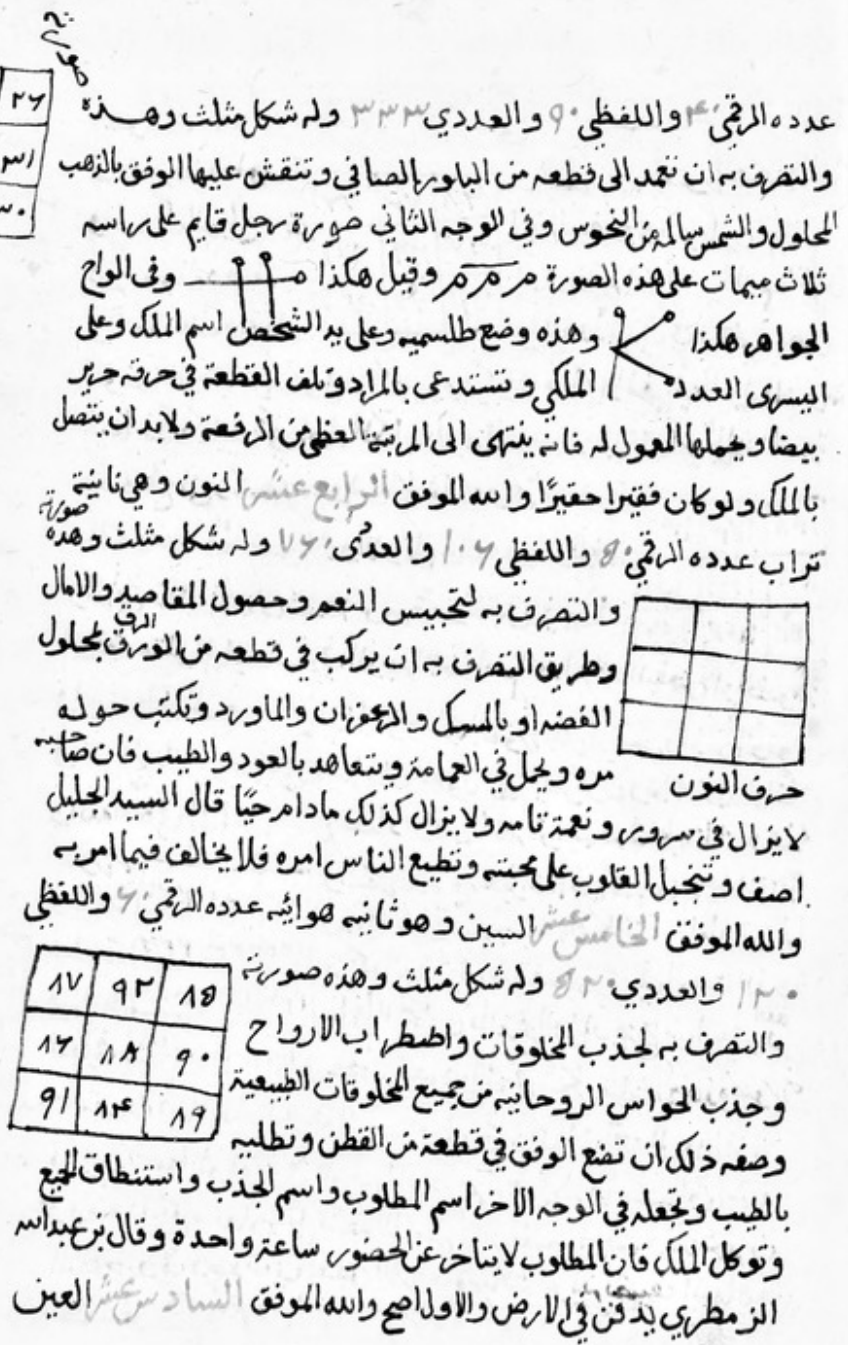 عدده الرقمي ٤٠ واللفظي ٩٠ والعددي ٣٣٣ وله شكل مثلث وهذه صورته
والتصرف به ان تعمد الى قطعه من البلور الصافي وتنقش عليها الوفق بالذهب
المحلول والشمس سالمه من النحوس وفي الوجه الثاني صورة رجل قايم على راسه
ثلاث ميمات على هذه الصورة م م م وقيل هكذا وفي الواح
الجواهر هكذا وهذه وضع طلسميه وعلى يد الشخص اسم الملك وعلى
اليسرى العدد الملكي وتستدعى بالمراد وتلف القطعة في خرقه حرير
بيضا ويحملها المعمول له فانه ينتهى الى المرتبة العظمى من الرفعة ولابد ان يتصل
بالملك ولو كان فقيرا حقيرًا والله الموفق الرابع عشر النون وهي ثانية
تراب عدده الرقمي ٥٠ واللفظي ١٠٦ والعددى ٧٦٠ وله شكل مثلث وهذه صورته
والتصرف به لتحبيس النعم وحصول المقاصد والامال
وطريق التصرف به ان يركب في قطعه من الورق الرق بمحلول
الفضه او بالمسك والزعفران والماورد وتكتب حوله
حرف النون مره ويحمل في العمامة ويتعاهد بالعود والطيب فان صاحبه
لا يزال في سرور ونعمة تامه ولا يزال كذلك مادام حيًا قال السيد الجليل
اصف وتنجبل القلوب على محبته وتطيع الناس امره فلا يخالف فيما امر به
والله الموفق الخامس عشر السين وهو ثانيه هوائيه عدده الرقمي ٦٠ واللفظي
١٢٠ والعددي ٥٢٠ وله شكل مثلث وهذه صورته
والتصرف به لجذب المخلوقات واضطراب الارواح
وجذب الحواس الروحانيه من جميع المخلوقات الطبيعية
وصفه ذلك ان تضع الوفق في قطعة من القطن وتطليه
بالطيب وتجعله في الوجه الاخر اسم المطلوب واسم الجذب واستنطاق الجميع
وتوكل الملك فان المطلوب لا يتاخر عن الحضور ساعة واحدة وقال بن عبدالله
يدفن في الارض والاول اصح والله الموفق السادس عشر العين
٢٦
٣١
٣٠
٨٧ ٩٢ ٨٥
٨٦ ٨٨ ٩٠
٩١ ٨٤ ٨٩